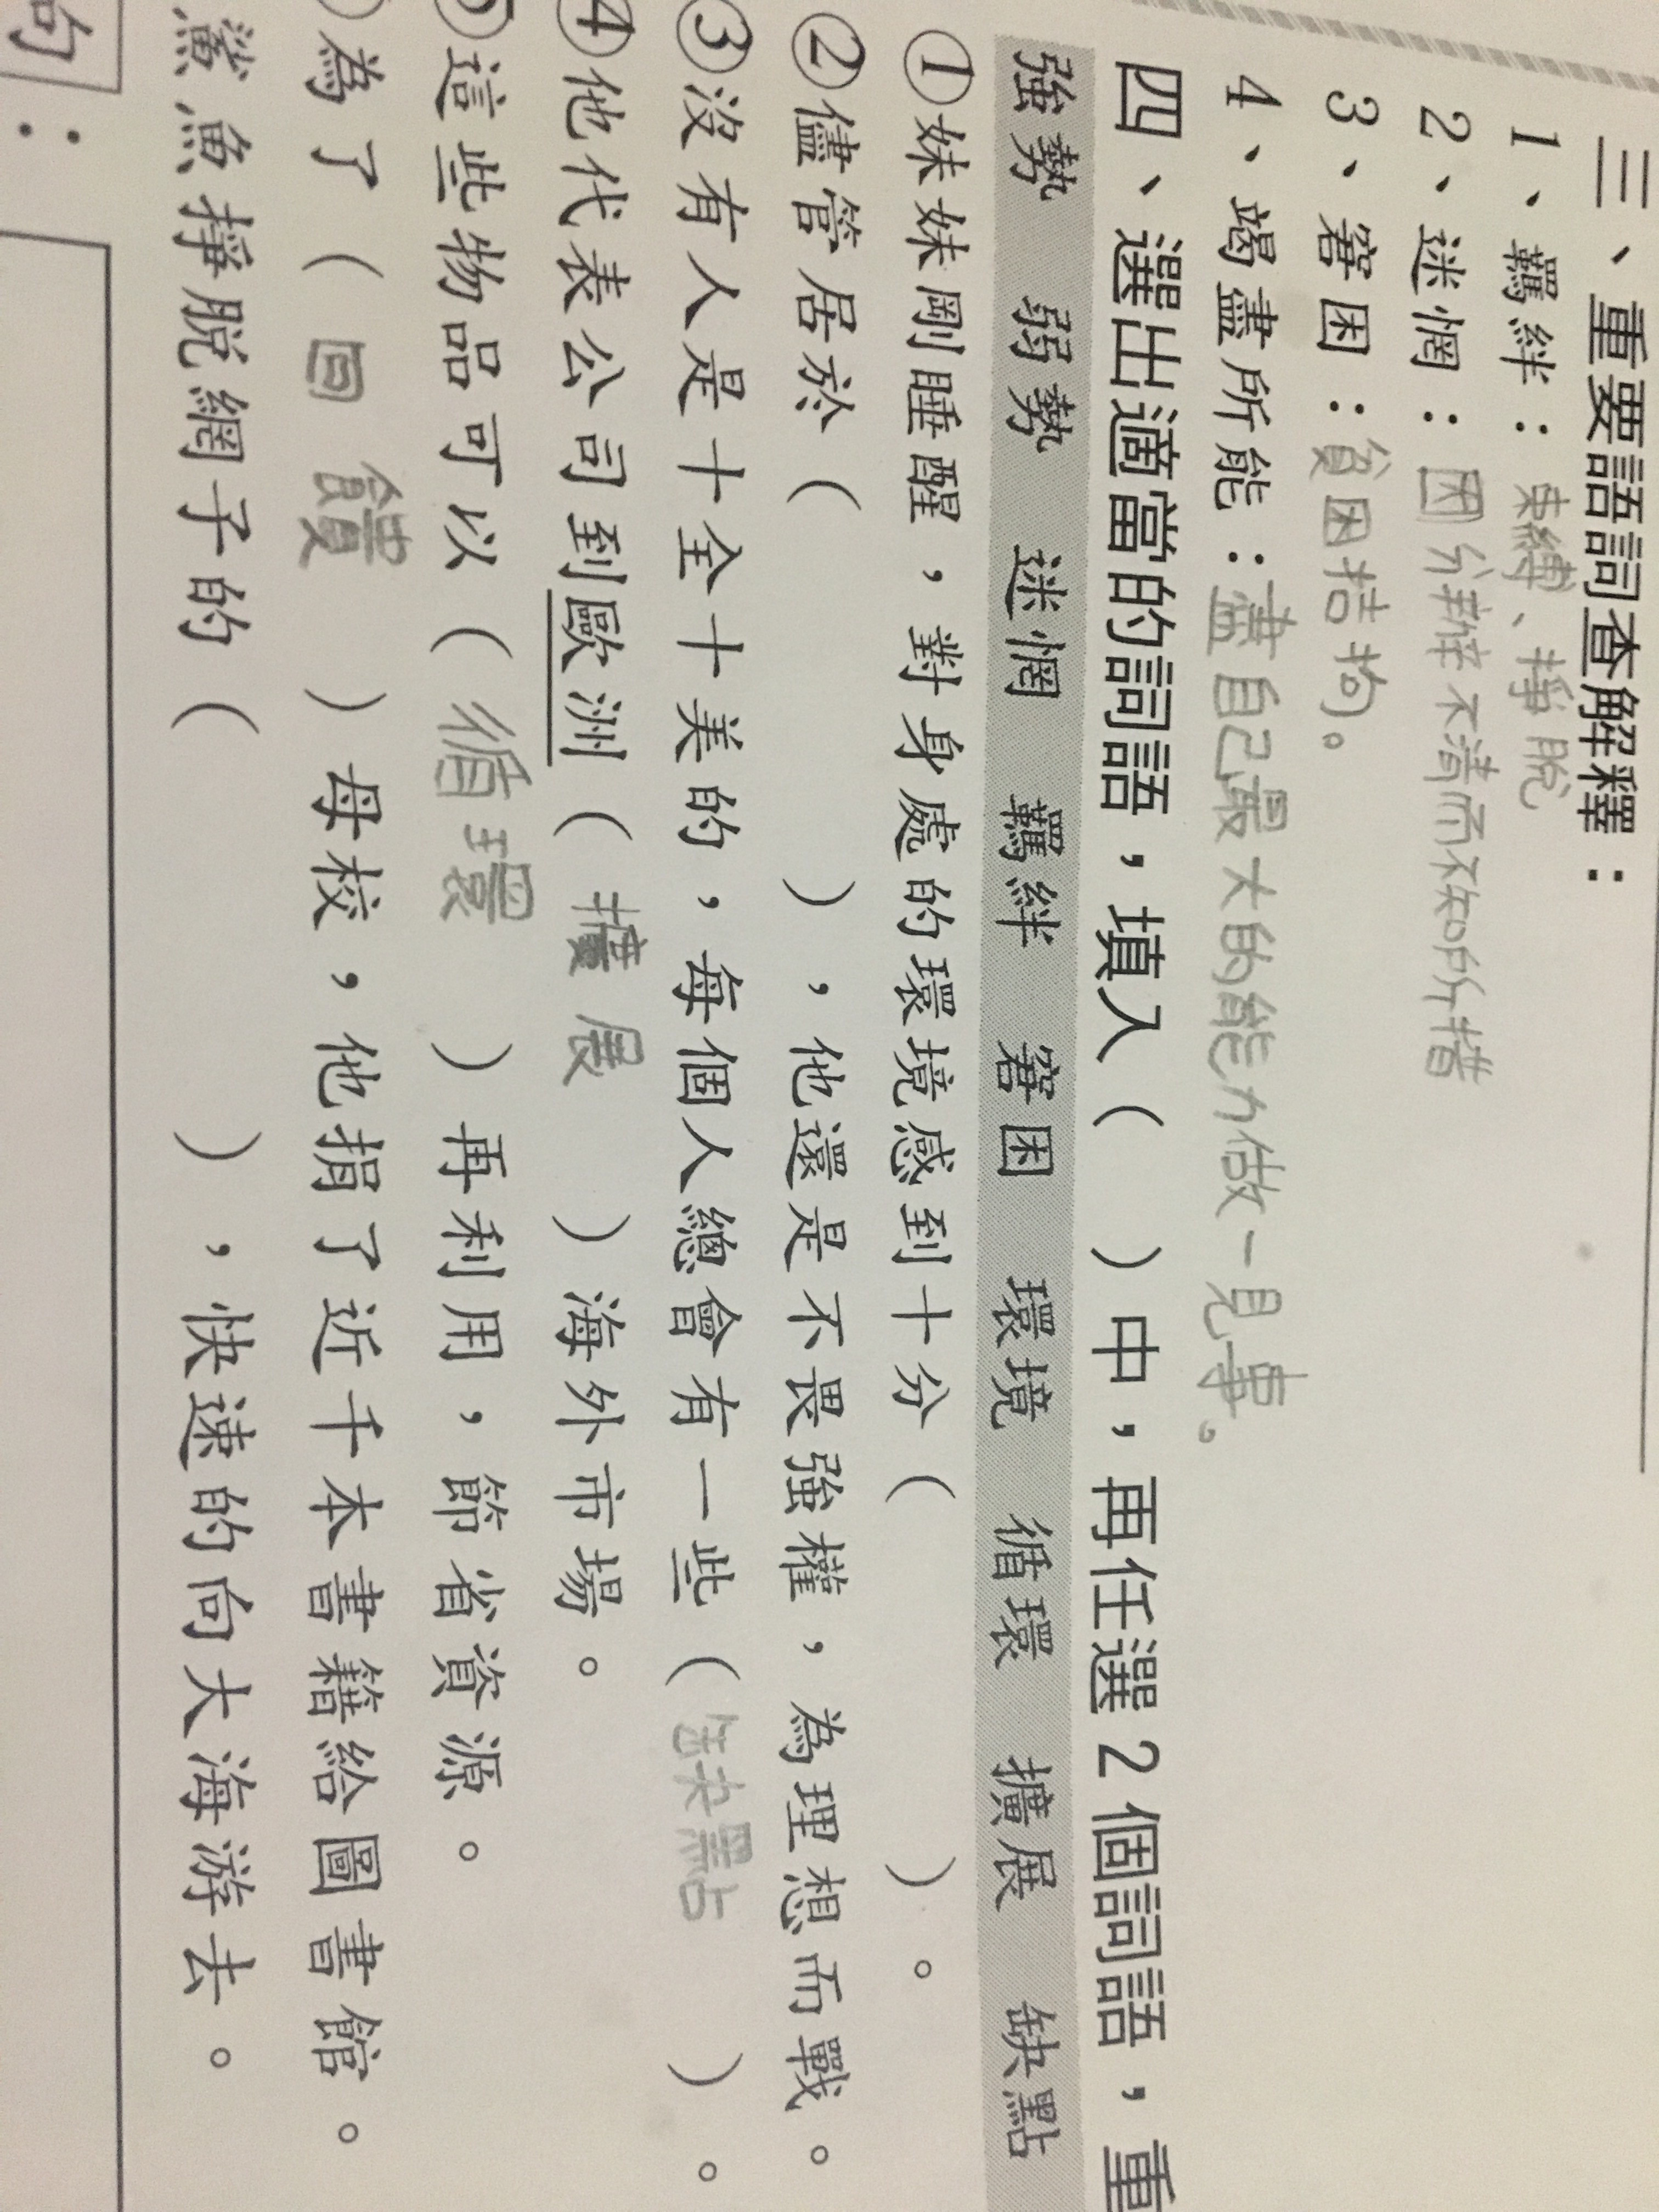 三、重要語詞查解釋：
1、羈絆：束縛、掙脫
2、迷惘：困分辨不清而不知所措
3、窘困：貧困拮拘。
4、竭盡所能：盡自己最大的能力做一見事。
四、選出適當的詞語，填入（　）中，再任選2個詞語，重
強勢　弱勢　迷惘　羈絆　窘困　環境　循環　擴展　缺點
①妹妹剛睡醒，對身處的環境感到十分（　）。
②儘管居於（　），他還是不畏強權，為理想而戰。
③沒有人是十全十美的，每個人總會有一些（缺點）。
④他代表公司到歐洲（擴展）海外市場。
⑤這些物品可以（循環）再利用，節省資源。
為了（回饋）母校，他捐了近千本書籍給圖書館。
鯊魚掙脫網子的（　），快速的向大海游去。
句：